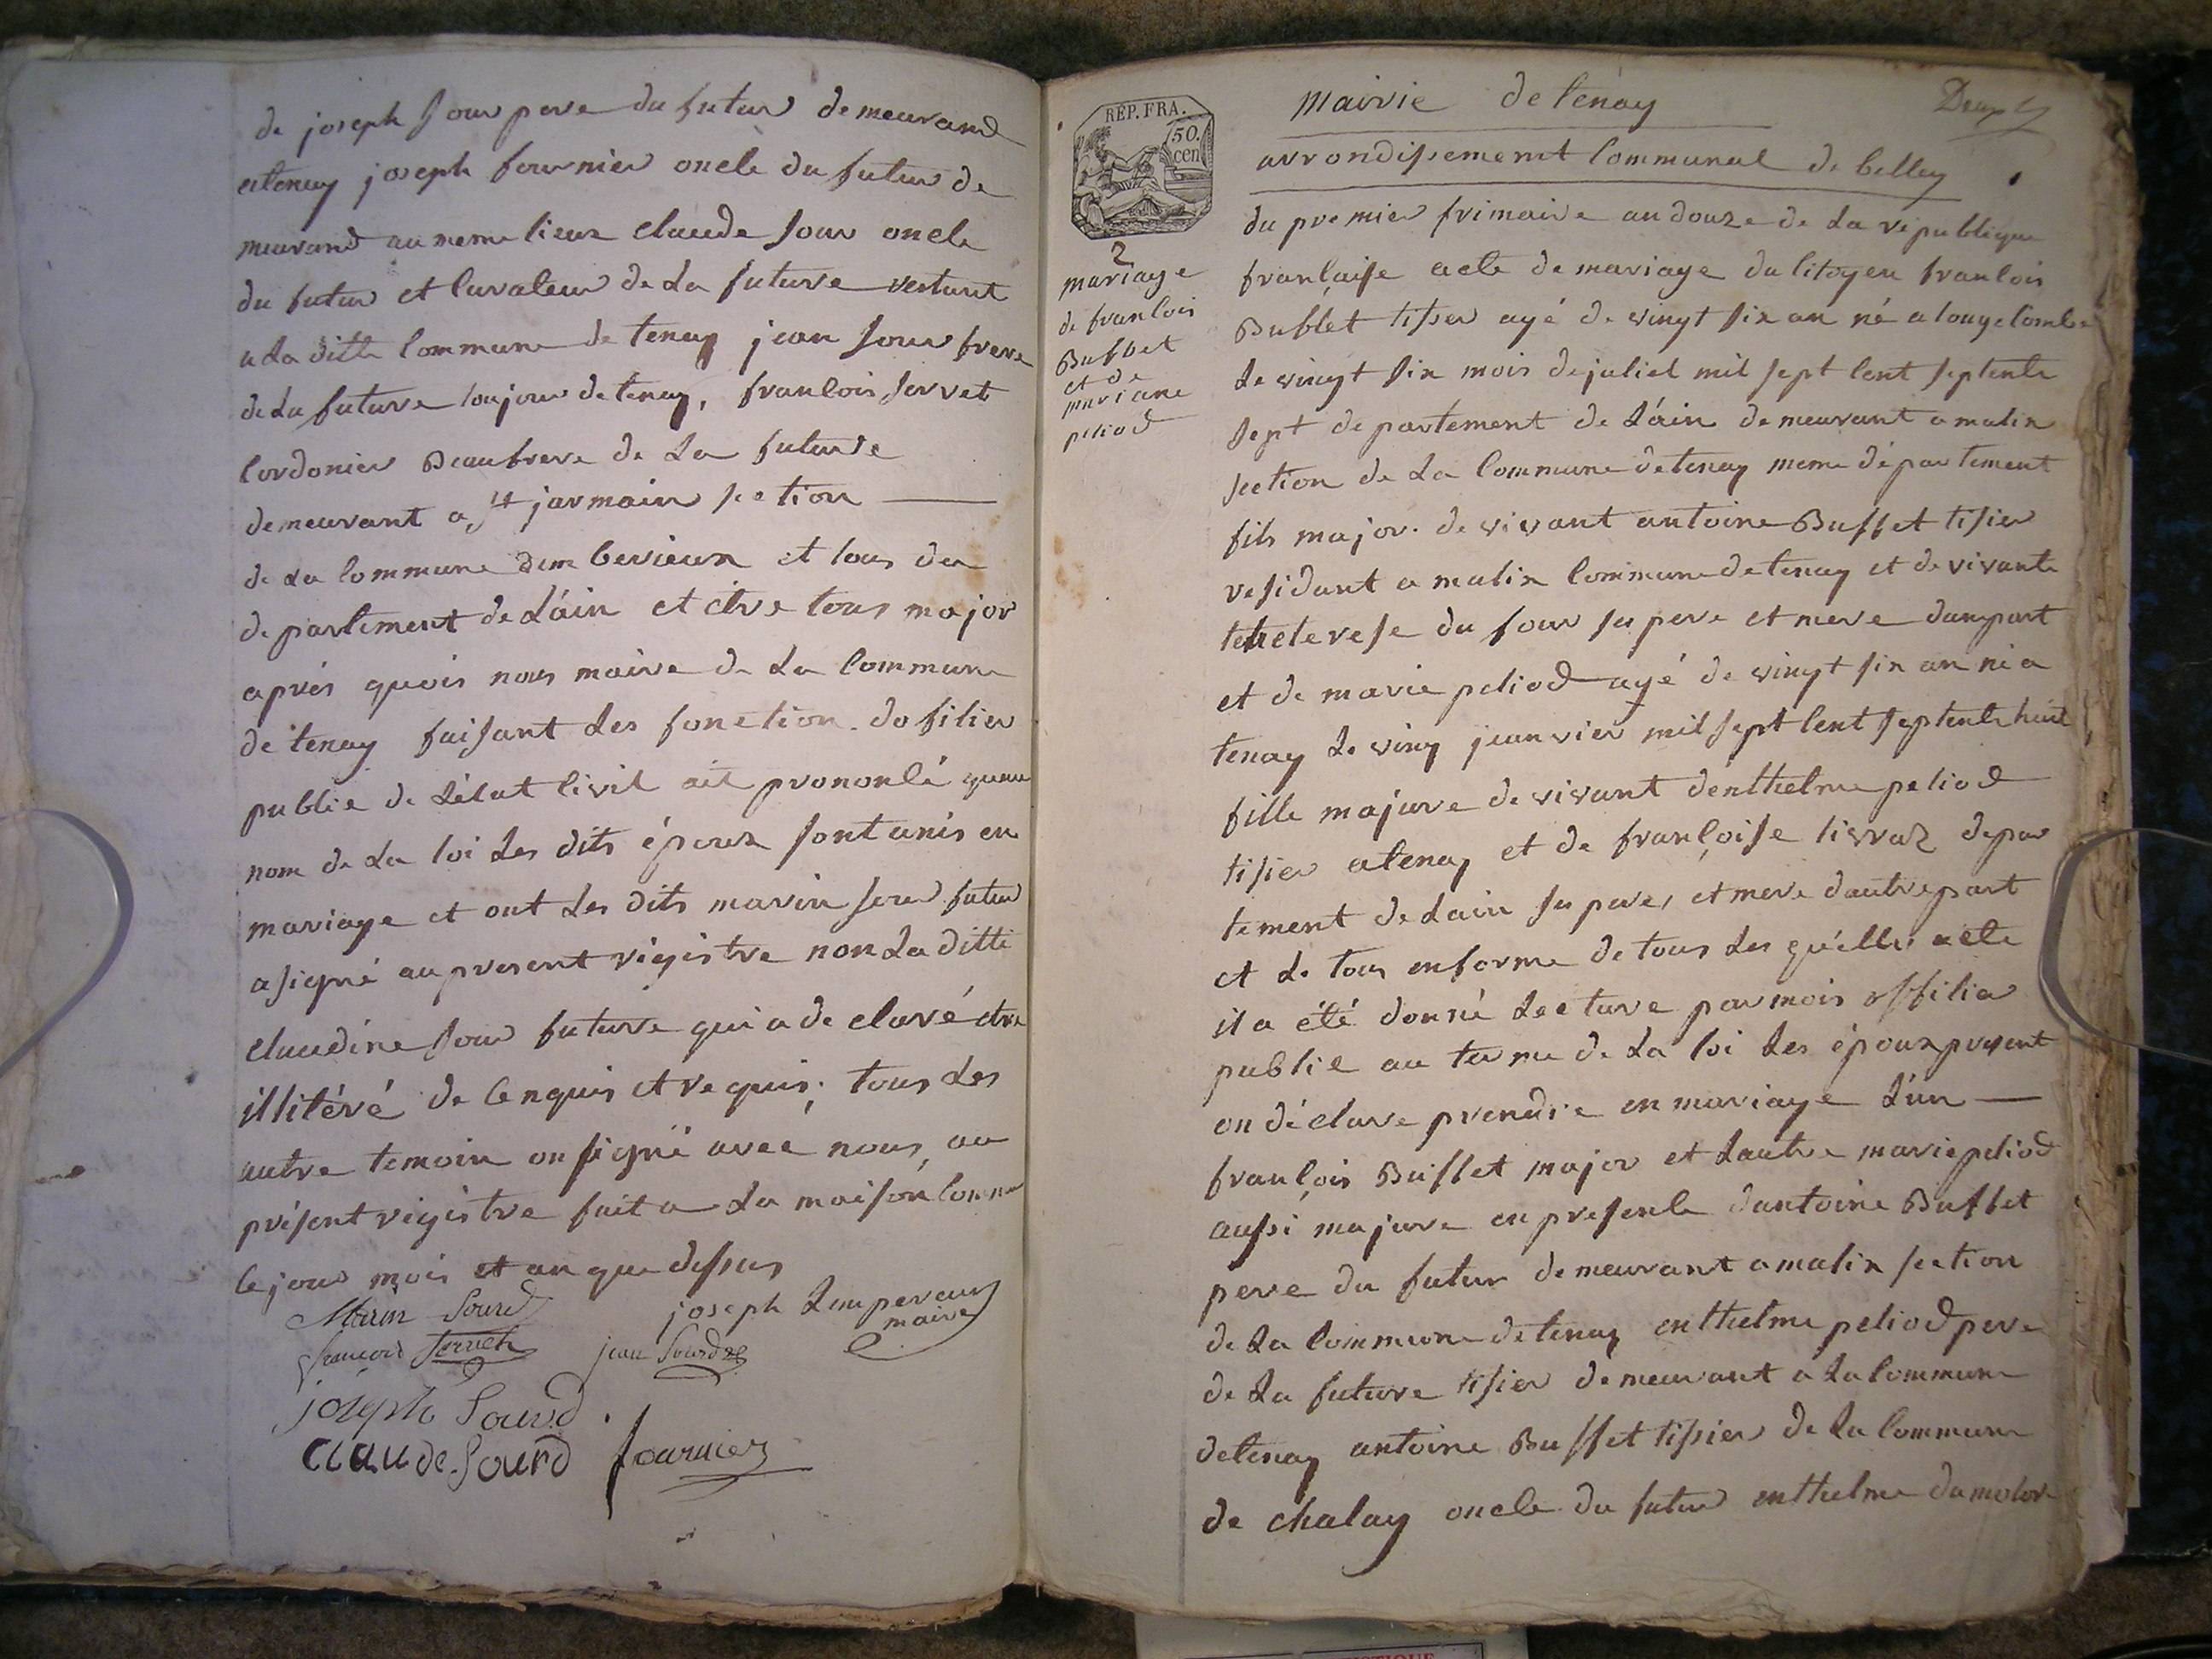 de joseph sour pere du futur demeurand
atenay joseph fournier oncle du futur de
meurand au meme lieux claude sour oncle
du futur et curateur de la future restant
a la ditte commune de tenay jean sour frere
de la future toujour de tenay, francois servet
cordonier Beaufrere de la future
demeurant a st jarmain section
de la commune dembericux et tous du
departement de L'ain et etre tous major
aprés quois nous maire de la Commune
de tenay faisant les fonction dofisier
public de l'état civil ait prononcé quau
nom de la loi les dits époux sont unis en
mariage et ont les dits marin sour futur
a signé au present registre non la ditte
claudine sour future qui a declaré etre
illitéré de cenquis et requis, tous les
autre temoin on signé avec nous, au
présent registre fait a la maison comm
le jour mois et an que dessus
Marin Sourd
joseph Lempereur
maire
francois Servet
jean Sourd
joseph Sourd
Claude Sourd fournier
mairie de tenay
RÉP. FRA.
50.
cen
arrondissement Communal de belley
2
mariage
de francois
Buffet
et de
mariane
peliod
du premier frimaire an douze de la republique
française acte de mariage du citoyen francois
Buffet tisser agé de vingt six an né a longecombe
le vingt six mois de juliet mil sept cent septente
sept departement de L'ain demeurant a malix
section de la Commune de tenay meme département
fils major de vivant antoine Buffet tisier
residant a malix Commune de tenay et de vivante
terese du four sa pere et mere dunpart
et de marie peliod agé de vingt six an né a
tenay le ving jeanvier mil sept cent septente huit
fille majure de vivant denthelme peliod
tisier atenay et de françoise livraz depar
tement de Lain sa pere, et mere d'autre part
et le tous enforme de tous les quelle acte
il a été donné lecture par mois offisier
public au terme de la loi les époux present
on déclare prendre en mariage L'un
françois Buffet major et Lautre marie peliod
aussi majure en presence dantoine Buffet
pere du futur demeurant a malix section
de la Commune de tenay enthelme peliod pere
de la future tisier demeurant a la commune
de tenay antoine Buffet tisier de la Commune
de chaley oncle du futur enthelme dumolore